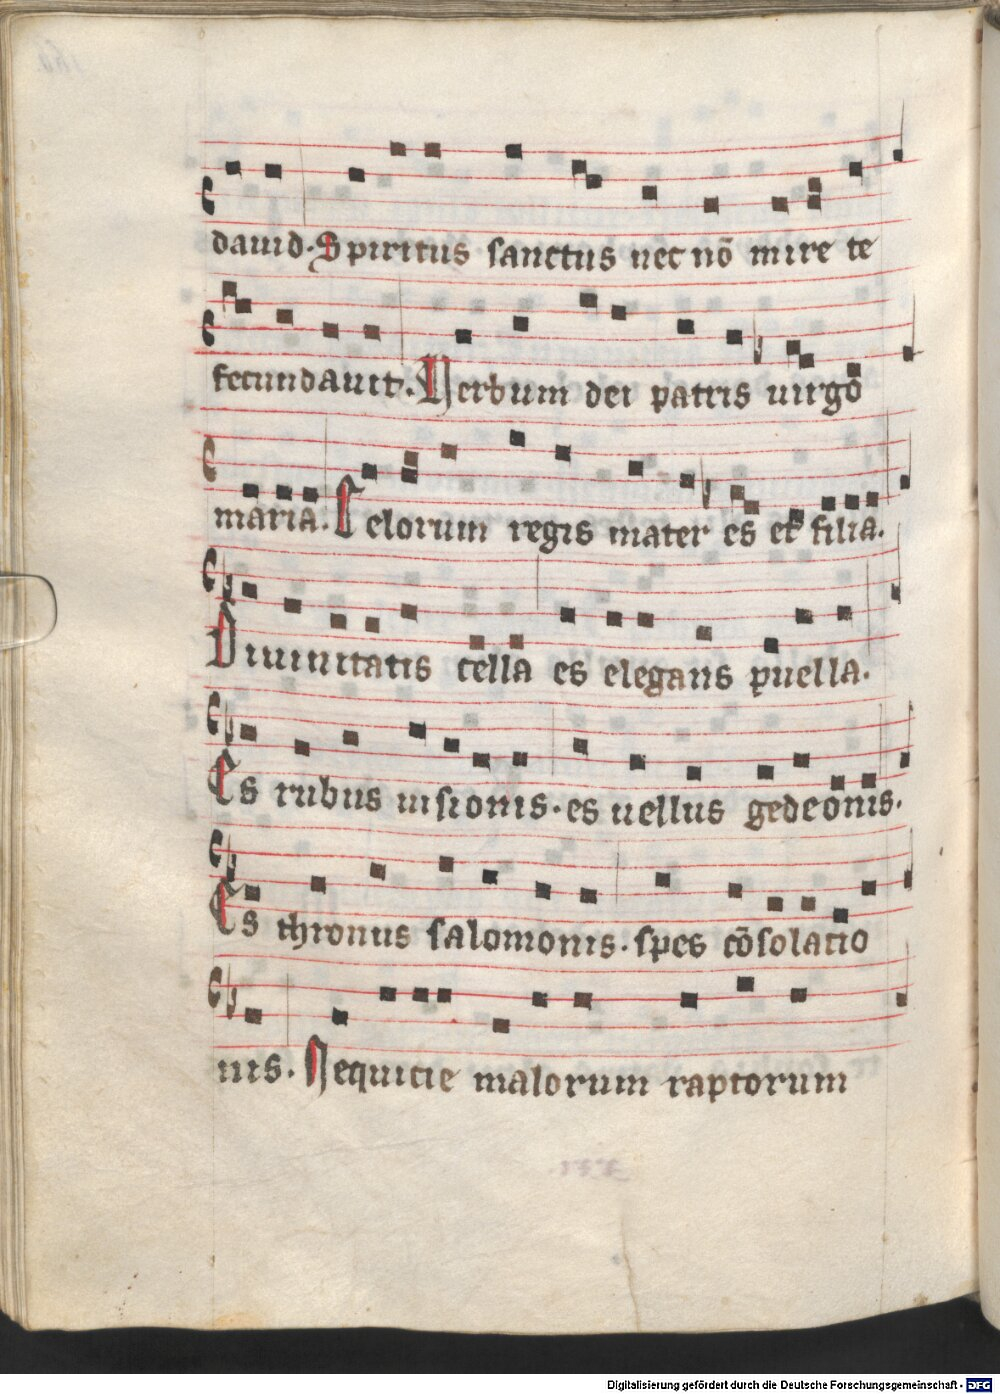 dauid. Spiritus sanctus nec nō mire te
fecundauit. Verbum dei patris uirgo
maria. Celorum regis mater es et filia.
Diuinitatis cella es elegans puella.
Es rubus uisionis. es uellus gedeonis.
Es thronus salomonis. spes cōsolatio
nis. Nequicie malorum raptorum
Digitalisierung gefördert durch die Deutsche Forschungsgemeinschaft - DFG